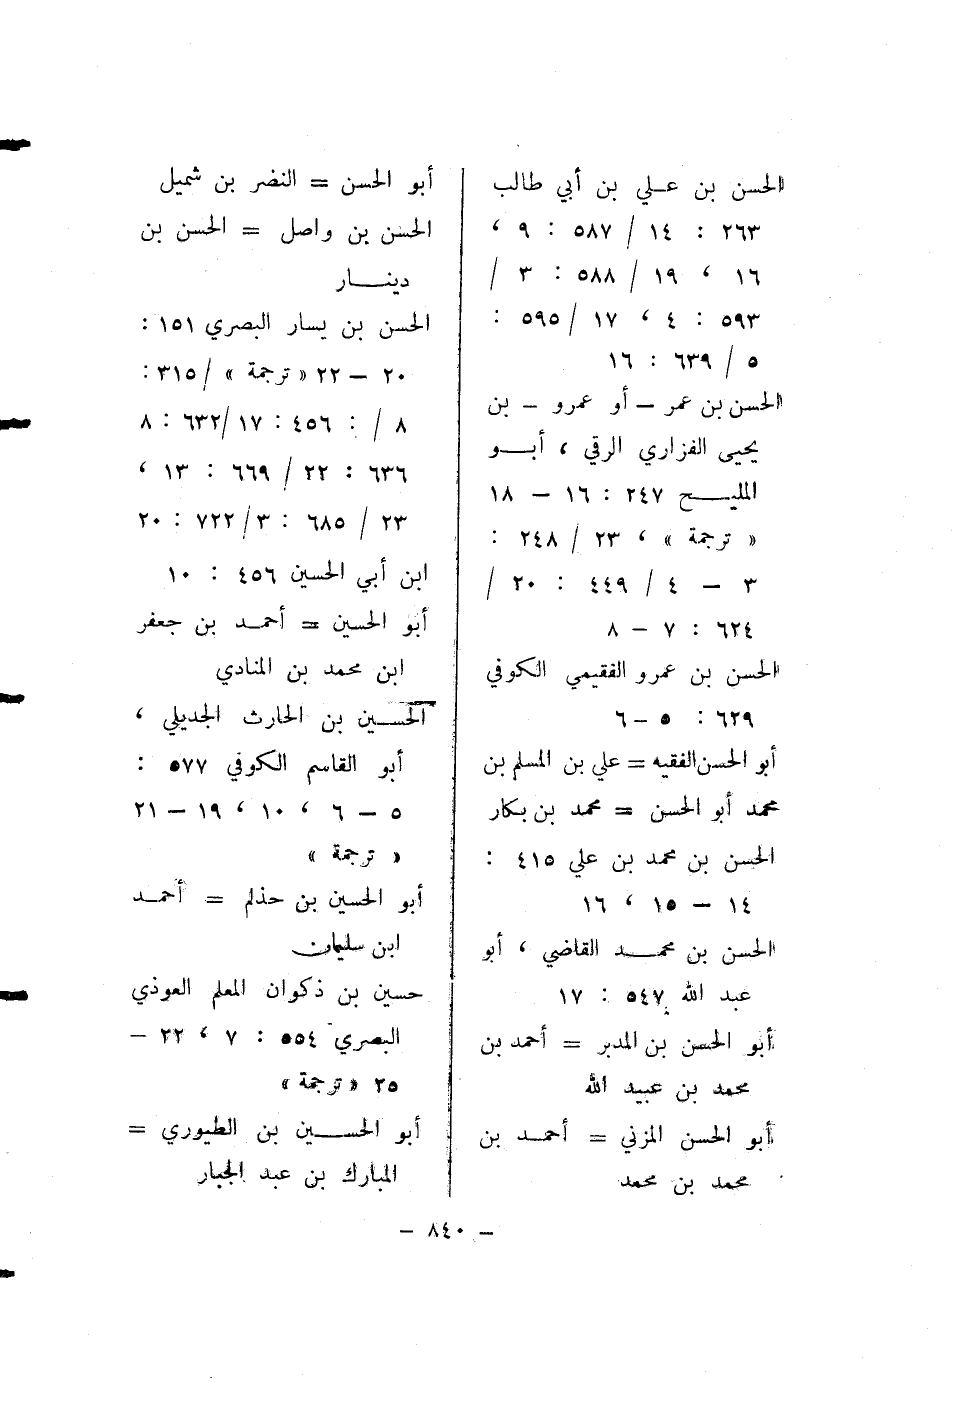 الحسن بن علي بن أبي طالب
٢٦٣ : ١٤ / ٥٨٧ : ٩ ،
١٦ ، ١٩ / ٥٨٨ : ٣ /
٥٩٣ : ٤ ، ١٧ / ٥٩٥ :
٥ / ٦٣٩ : ١٦
الحسن بن عمر – أو عمرو – بن
يحيى الفزاري الرقي ، أبو
المليح ٢٤٧ : ١٦ – ١٨
« ترجمة » ، ٢٣ / ٢٤٨ :
٣ – ٤ / ٤٤٩ : ٢٠ /
٦٢٤ : ٧ – ٨
الحسن بن عمرو الفقيمي الكوفي
٦٢٩ : ٥ – ٦
أبو الحسن الفقيه = علي بن المسلم بن
محمد أبو الحسن = محمد بن بكار
الحسن بن محمد بن علي ٤١٥ :
١٤ – ١٥ ، ١٦
الحسن بن محمد القاضي ، أبو
عبد الله ٥٤٧ : ١٧
أبو الحسن بن المدبر = أحمد بن
محمد بن عبيد الله
أبو الحسن المزني = أحمد بن
محمد بن محمد
أبو الحسن = النضر بن شميل
الحسن بن واصل = الحسن بن
دينار
الحسن بن يسار البصري ١٥١ :
٢٠ – ٢٢ « ترجمة » / ٣١٥ :
٨ / ٤٥٦ : ١٧ / ٦٣٢ : ٨
٦٣٦ : ٢٢ / ٦٦٩ : ١٣ ،
٢٣ / ٦٨٥ : ٣ / ٧٢٢ : ٢٠
ابن أبي الحسين ٤٥٦ : ١٠
أبو الحسين = أحمد بن جعفر
ابن محمد بن المنادي
الحسين بن الحارث الجديلي ،
أبو القاسم الكوفي ٥٧٧ :
٥ – ٦ ، ١٠ ، ١٩ – ٢١
« ترجمة »
أبو الحسين بن حذلم = أحمد
ابن سليمان
حسين بن ذكوان المعلم العوذي
البصري ٥٥٤ : ٧ ، ٢٢ –
٢٥ « ترجمة »
أبو الحسين بن الطيوري =
المبارك بن عبد الجبار
– ٨٤٠ –